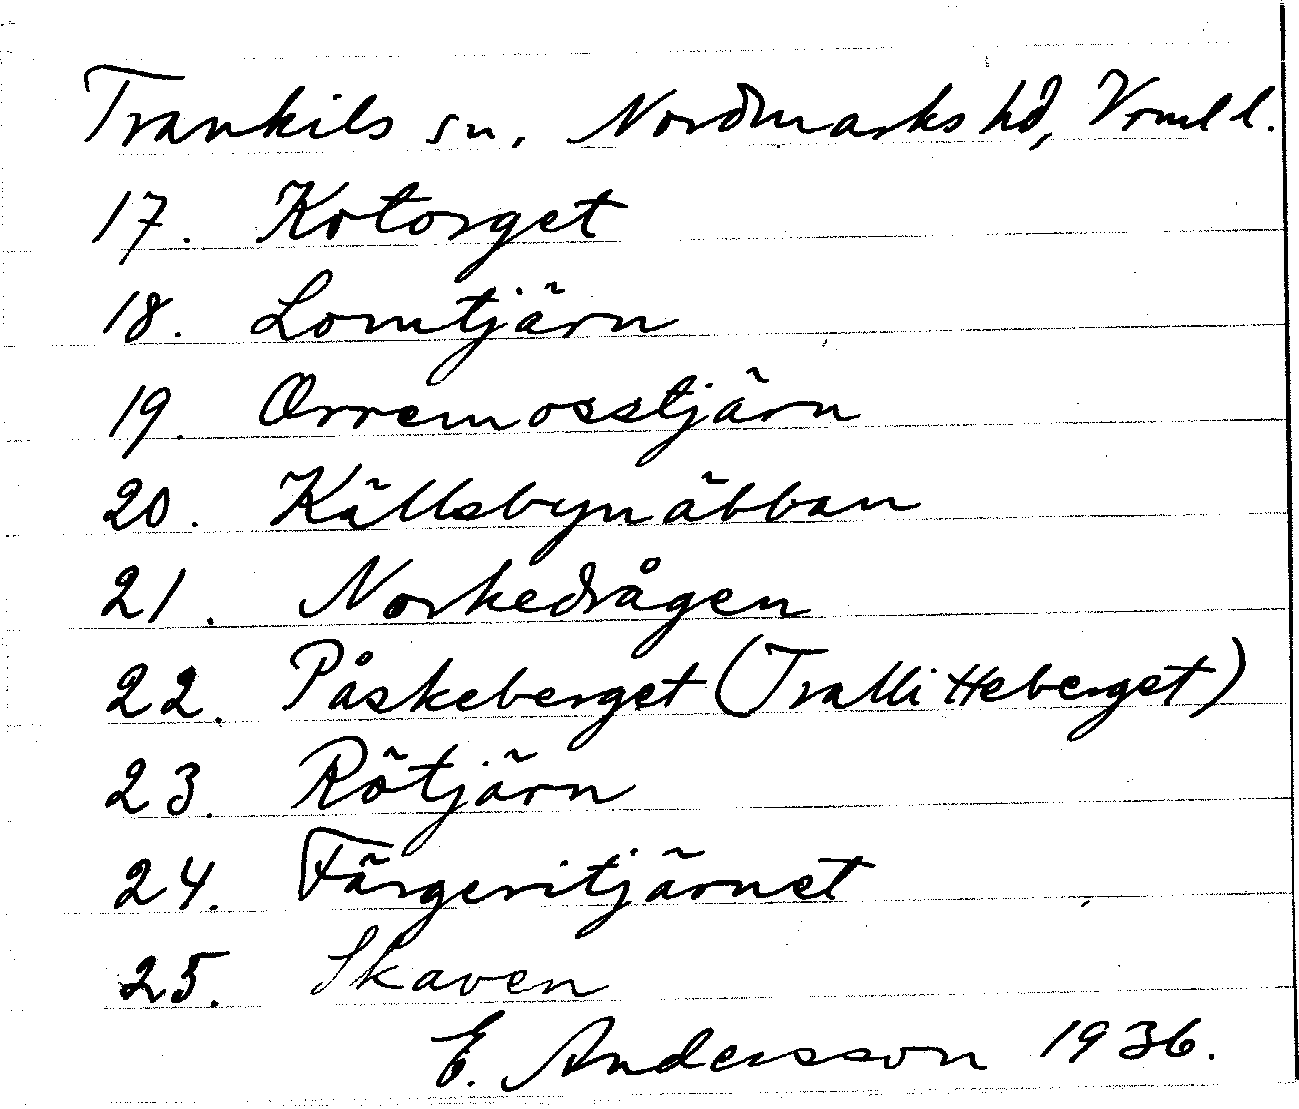 Trankils sn, Nordmarks hd, Vrml l.
17. Kotorget
18. Lomtjärn
19. Orremosstjärn
20. Källsbynäbban
21. Norkedrågen
22. Påskeberget (Trallitteberget)
23. Rötjärn
24. Färgeritjärnet
25. Skaven
E. Andersson 1936.